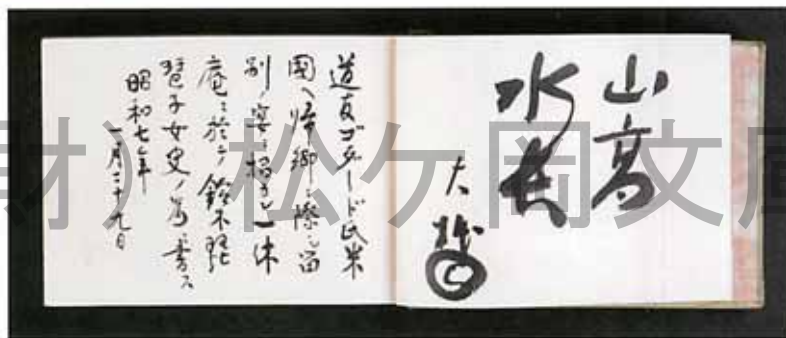 山高
水長
大拙
道友ゴダード氏米
國ヘ帰郷ニ際シ留
別ノ宴ニ招カレ一休
庵ニ於テ鈴木琵
琶子女史ノ為ニ書ス
昭和七年
一月二十九日
財）松ヶ岡文庫